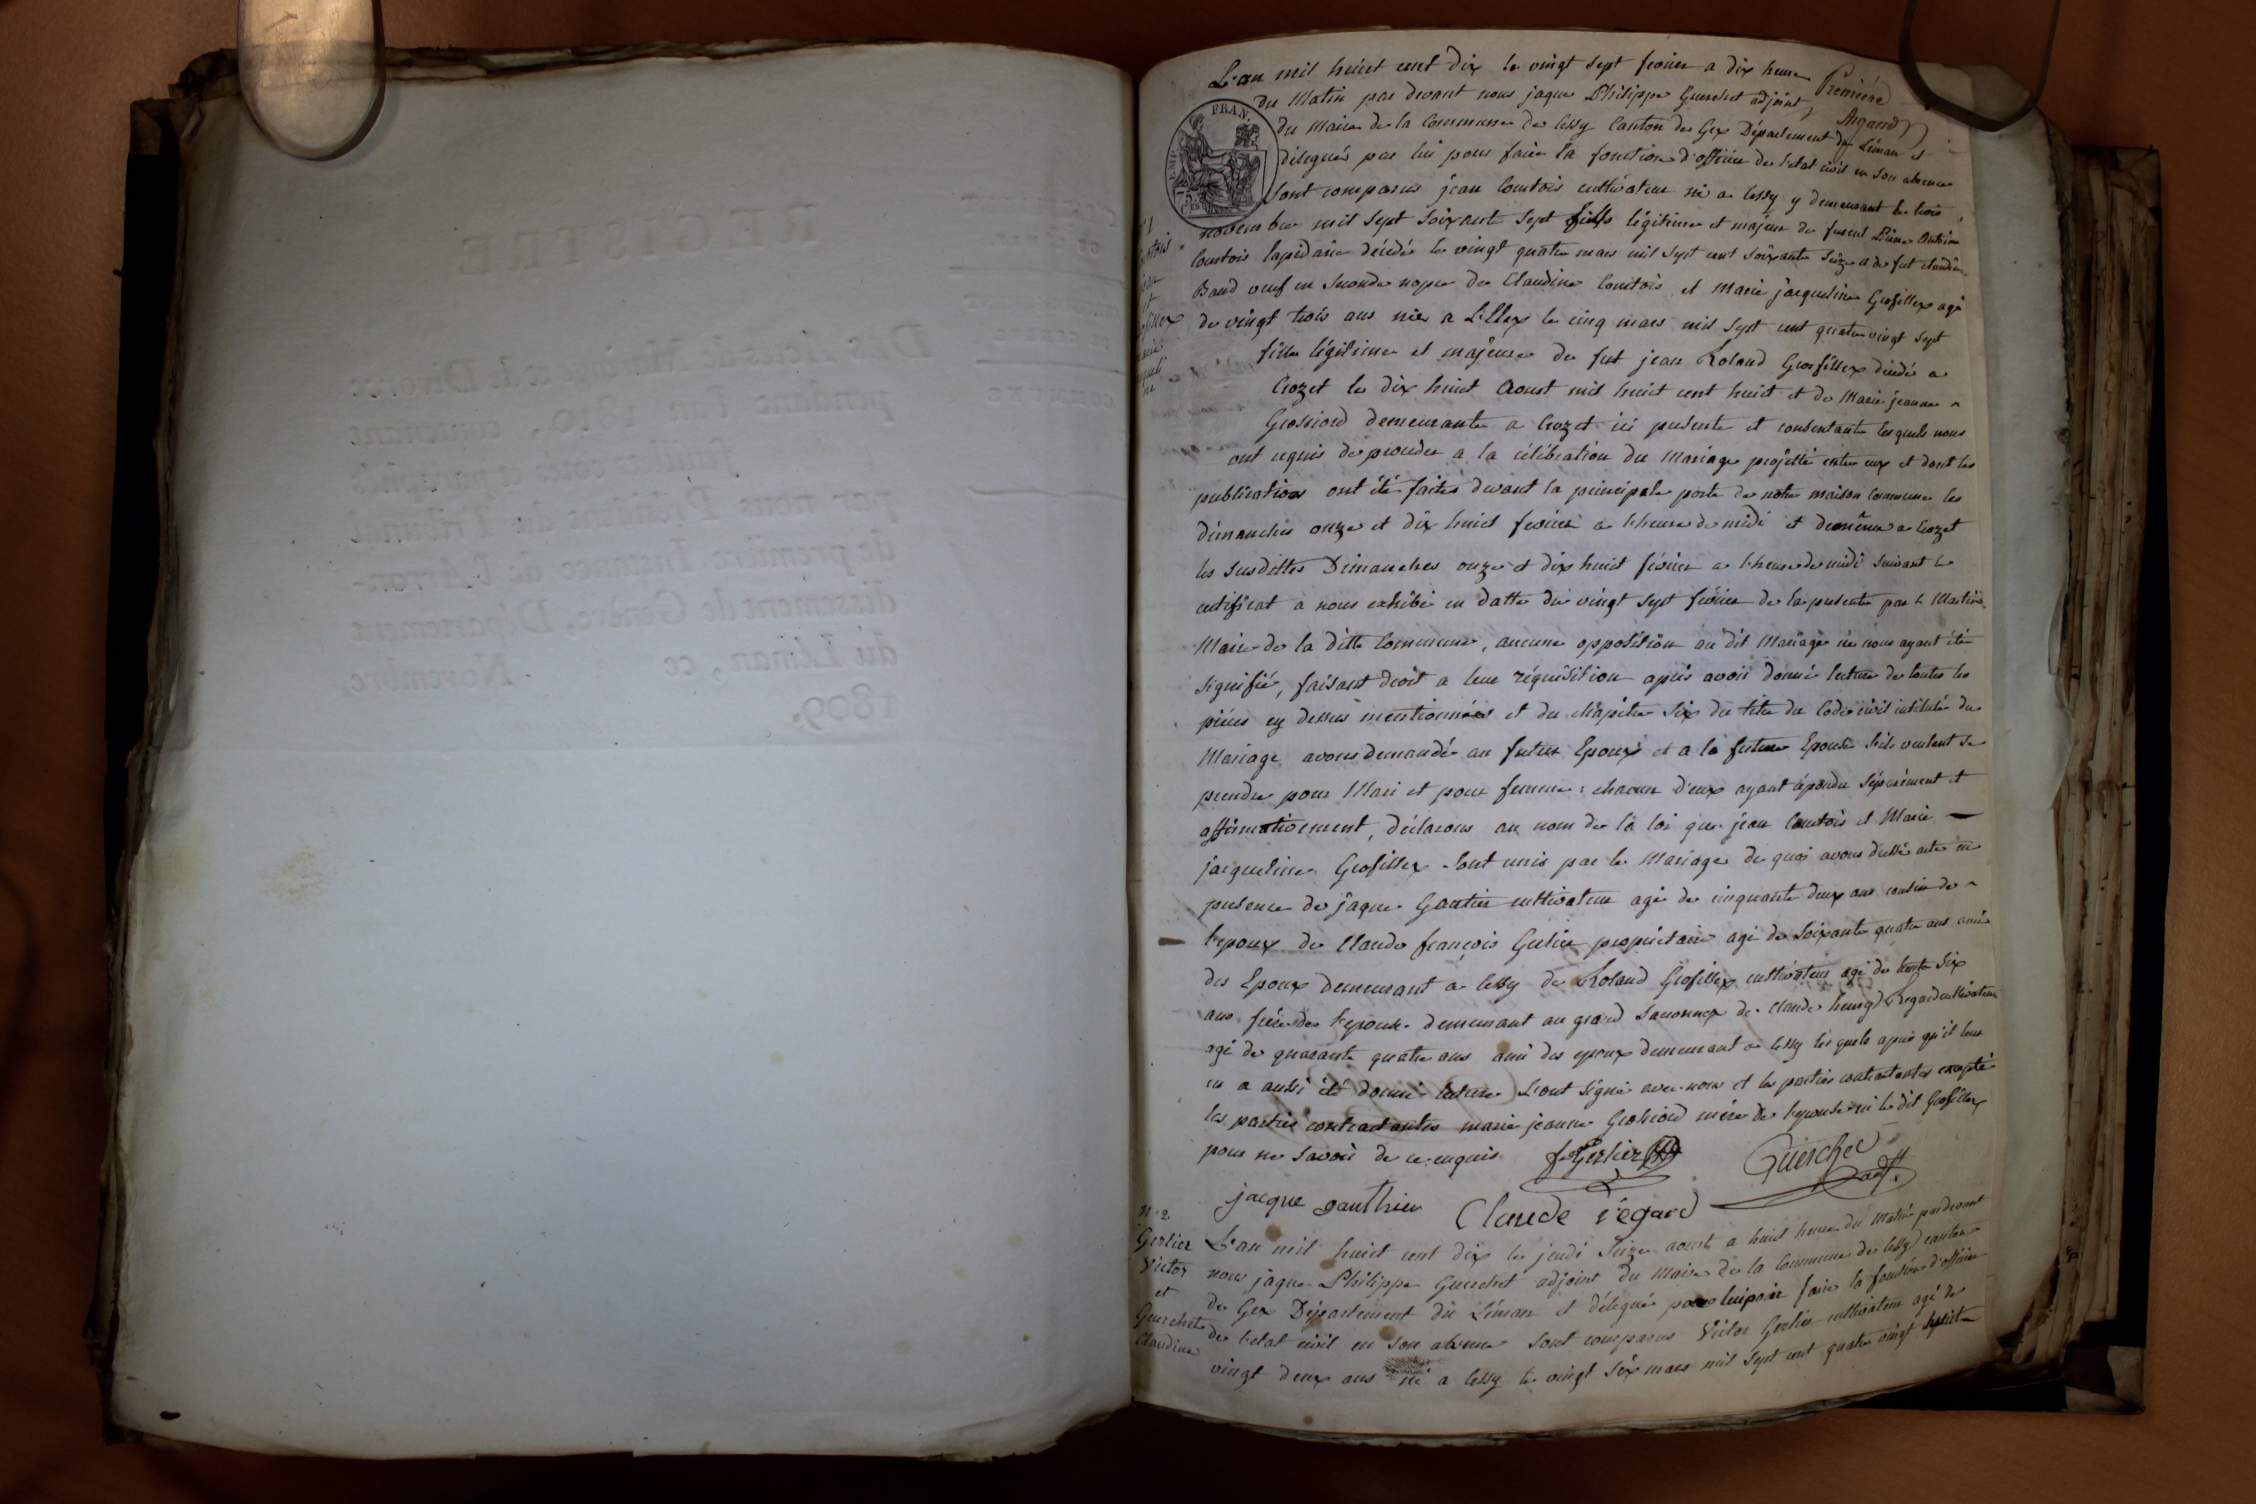 L'an mil huict cent dix le vingt sept fevrier a dix heure
Première
du Matin par devant nous jaque Philippe Guerchet adjoint
Argand
du Maire de la Commune de Cessy Canton de Gex Département du Léman et
délegués par lui pour faire la fonction d'officier de l'etat civil en son absence
sont comparus jean Courtois cultivateur né a Cessy y demeurant le trois
novembre mil sept soixant sept fils légitime et majeur de feseut Pierre Antoine
Courtois lapidaire décédé le vingt quatre mars mil sept cent soixante seize et de fut claudine
Baud veuf en seconde nopce de Claudine Courtois et Marie jacqueline Grosfillex agé
de vingt trois ans née a L'Ellex le cinq mars mil sept cent quatre vingt sept
fille légitime et majeure de fut jean Roland Grosfillex décédé a
Crozet le dix huict Aoust mil huict cent huict et de Marie jeanne
Grossiord demeurante a Crozet ici presente et consentante lesquels nous
ont requis de proceder a la célébration du Mariage projetté entre eux et dont les
publications ont été faites devant la principale porte de notre maison commune les
dimanches onze et dix huict fevrier a l'heure de midi et demême a Crozet
les susdittes Dimanches onze et dix huict février a l'heure de midi suivant le
certificat a nous exhibé en datte du vingt sept février de la presente par le Martin
Maire de la ditte Commune, aucune opposition au dit Mariage ne nous ayant été
signifié, faisant droit a leur réquisition après avoir donné lecture de toutes les
pièces cy dessus mentionnées et du chapitre six du titre du Code civil intitulé du
Mariage avons demandé au futur Epoux et a la future Epouse s'ils veulent se
prendre pour Mari et pour femme : chacun d'eux ayant répondu séparément et
affirmativement, déclarons au nom de la loi que jean Courtois et Marie
jacqueline Grosfillex sont unis par le Mariage de quoi avons dressé acte en
presence de jâque Gautier cultivateur agé de cinquante deux ans cousin de
l'epoux de Claude françois Gerlier propriétaire agé de soixante quatre ans ami
des Epoux demeurant a Cessy de Roland Grosfillex cultivateur agé de trente six
ans frère de l'epouse demeurant au grand Saconnex de Claude henry Regard cultivateur
agé de quarante quatre ans ami des epoux demeurant a Cessy lesquels après qu'il leur
en a aussi été donné lecture l'ont signé avec nous et les parties contractantes excepté
les parties contractantes marie jeanne Grossiord mère de l'epouse ni le dit Grosfillex
pour ne savoir de ce enquis
f Gerlier
Guerchet
adjt.
jacque gauthier
Claude régard
N° 2
Gerlier
Victor
et
Guerchet
Claudine
L'an mil huict cent dix le jeudi seize aoust a huict heure du Matin pardevant
nous jaque Philippe Guerchet adjoint du Maire de la Commune de Cessy canton
de Gex Département du Léman et délegué par lui pour faire la fonction d'officier
de l'etat civil en son absence sont comparus Victor Gerlier cultivateur agé de
vingt deux ans né a Cessy le vingt six mars mil sept cent quatre vingt huict
FRAN.
EMP.
REGISTRE
1809.